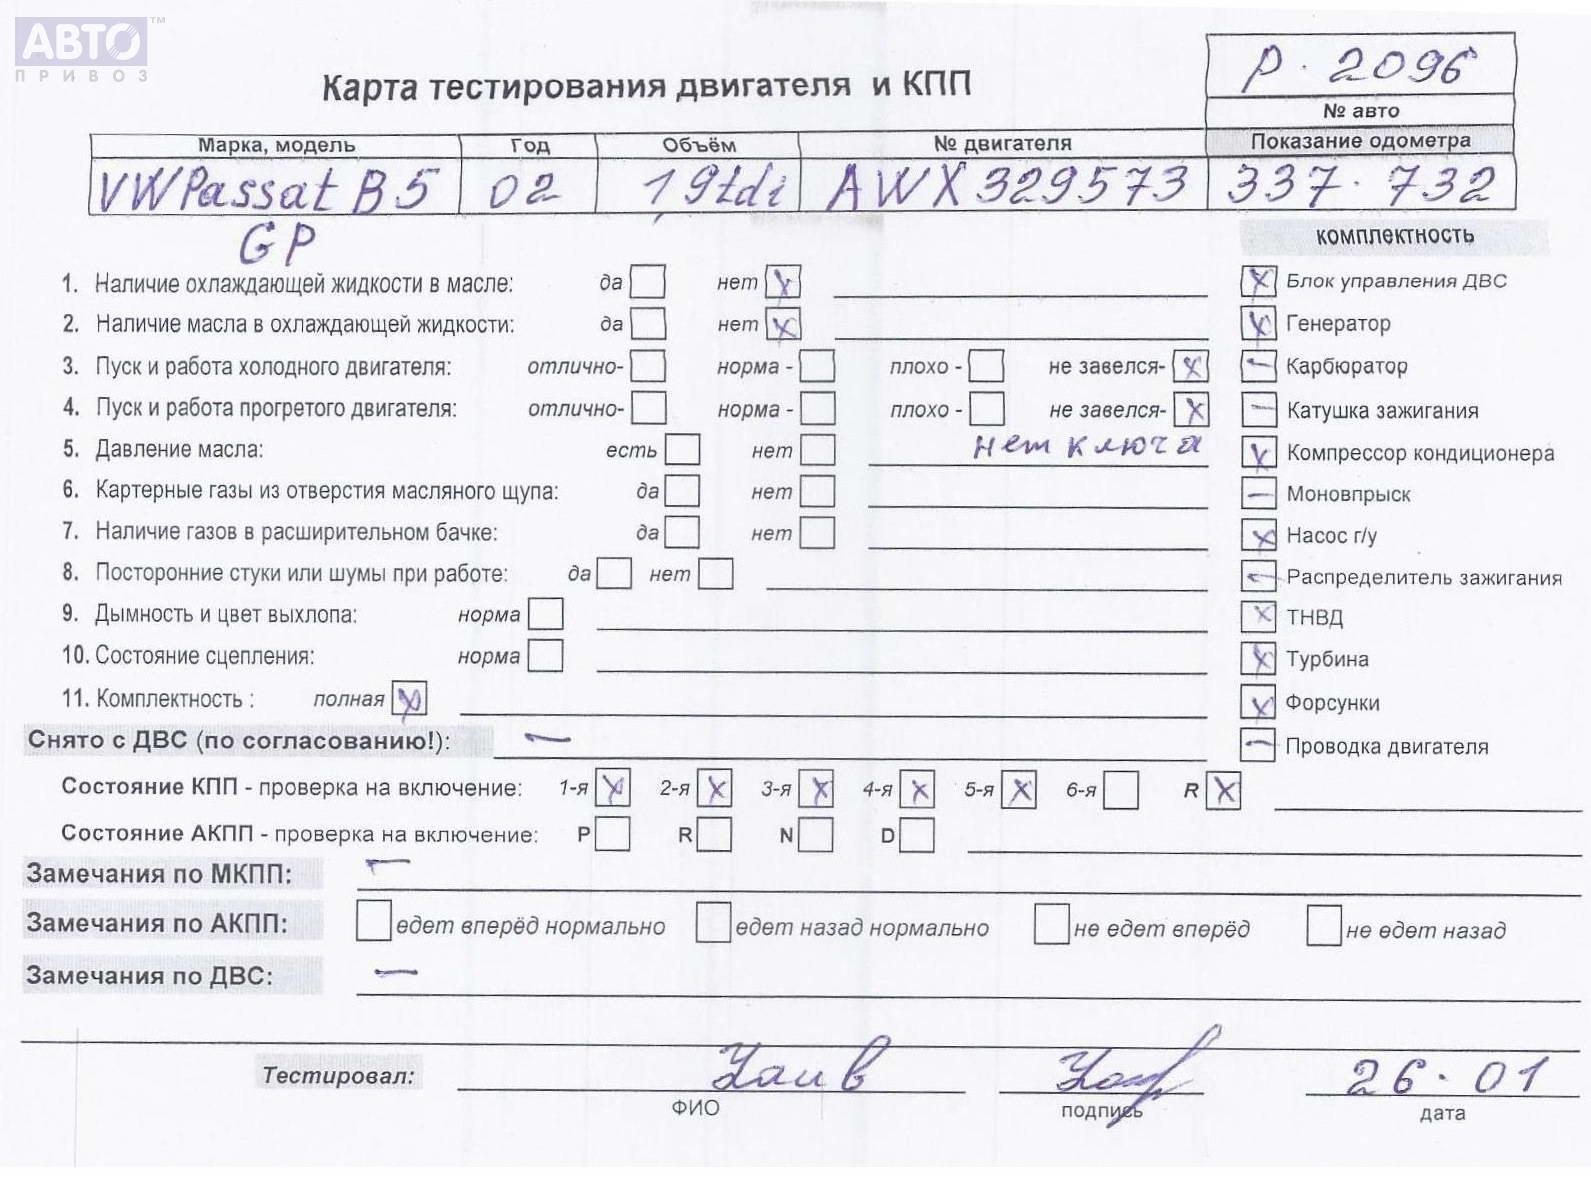 АВТО™
ПРИВОЗ
Р · 2096
Карта тестирования двигателя и КПП
№ авто
Марка, модель Год Объём № двигателя Показание одометра
VW Passat B5 02 1,9tdi AWX329573 337·732
GP
комплектность
1. Наличие охлаждающей жидкости в масле: да нет X
Блок управления ДВС X
2. Наличие масла в охлаждающей жидкости: да нет X
X Генератор
3. Пуск и работа холодного двигателя: отлично- норма - плохо - не завелся- X
- Карбюратор
4. Пуск и работа прогретого двигателя: отлично- норма - плохо - не завелся- X
- Катушка зажигания
5. Давление масла: есть нет нет ключа
X Компрессор кондиционера
6. Картерные газы из отверстия масляного щупа: да нет
- Моновпрыск
7. Наличие газов в расширительном бачке: да нет
X Насос г/у
8. Посторонние стуки или шумы при работе: да нет
- Распределитель зажигания
9. Дымность и цвет выхлопа: норма
X ТНВД
10. Состояние сцепления: норма
X Турбина
11. Комплектность : полная X
X Форсунки
Снято с ДВС (по согласованию!): -
- Проводка двигателя
Состояние КПП - проверка на включение: 1-я X 2-я X 3-я X 4-я X 5-я X 6-я R X
Состояние АКПП - проверка на включение: P R N D
Замечания по МКПП: -
Замечания по АКПП: едет вперёд нормально едет назад нормально не едет вперёд не едет назад
Замечания по ДВС: -
Тестировал: 26·01
ФИО подпись дата